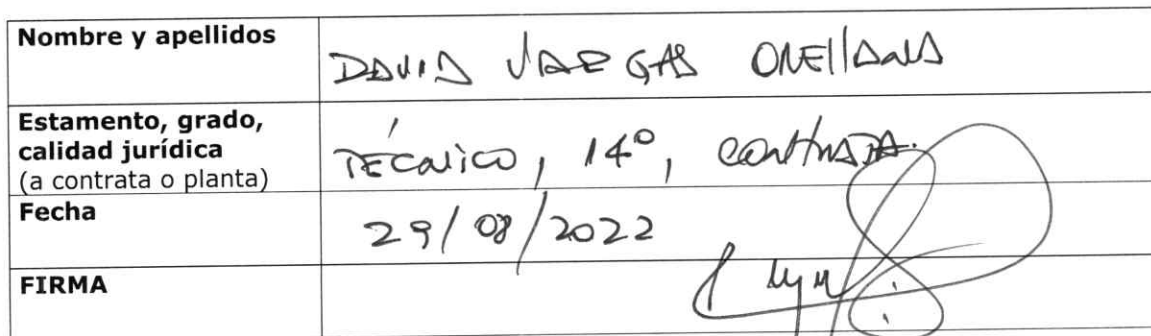 Nombre y apellidos
DAVID VARGAS ORELLANA
Estamento, grado,
calidad jurídica
(a contrata o planta)
TÉCNICO, 14º, CONTRATA.
Fecha
29/08/2022
FIRMA